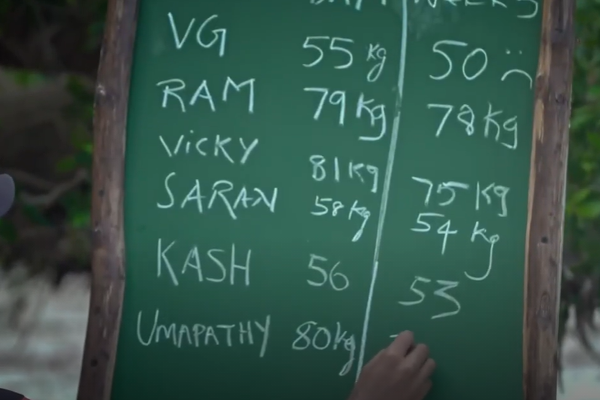 VG 55 kg 50 :(
RAM 79 kg 78 kg
VicKY 81 kg 75 kg
SARAN 58 kg 54 kg
KASH 56 53
UMAPATHY 80 kg